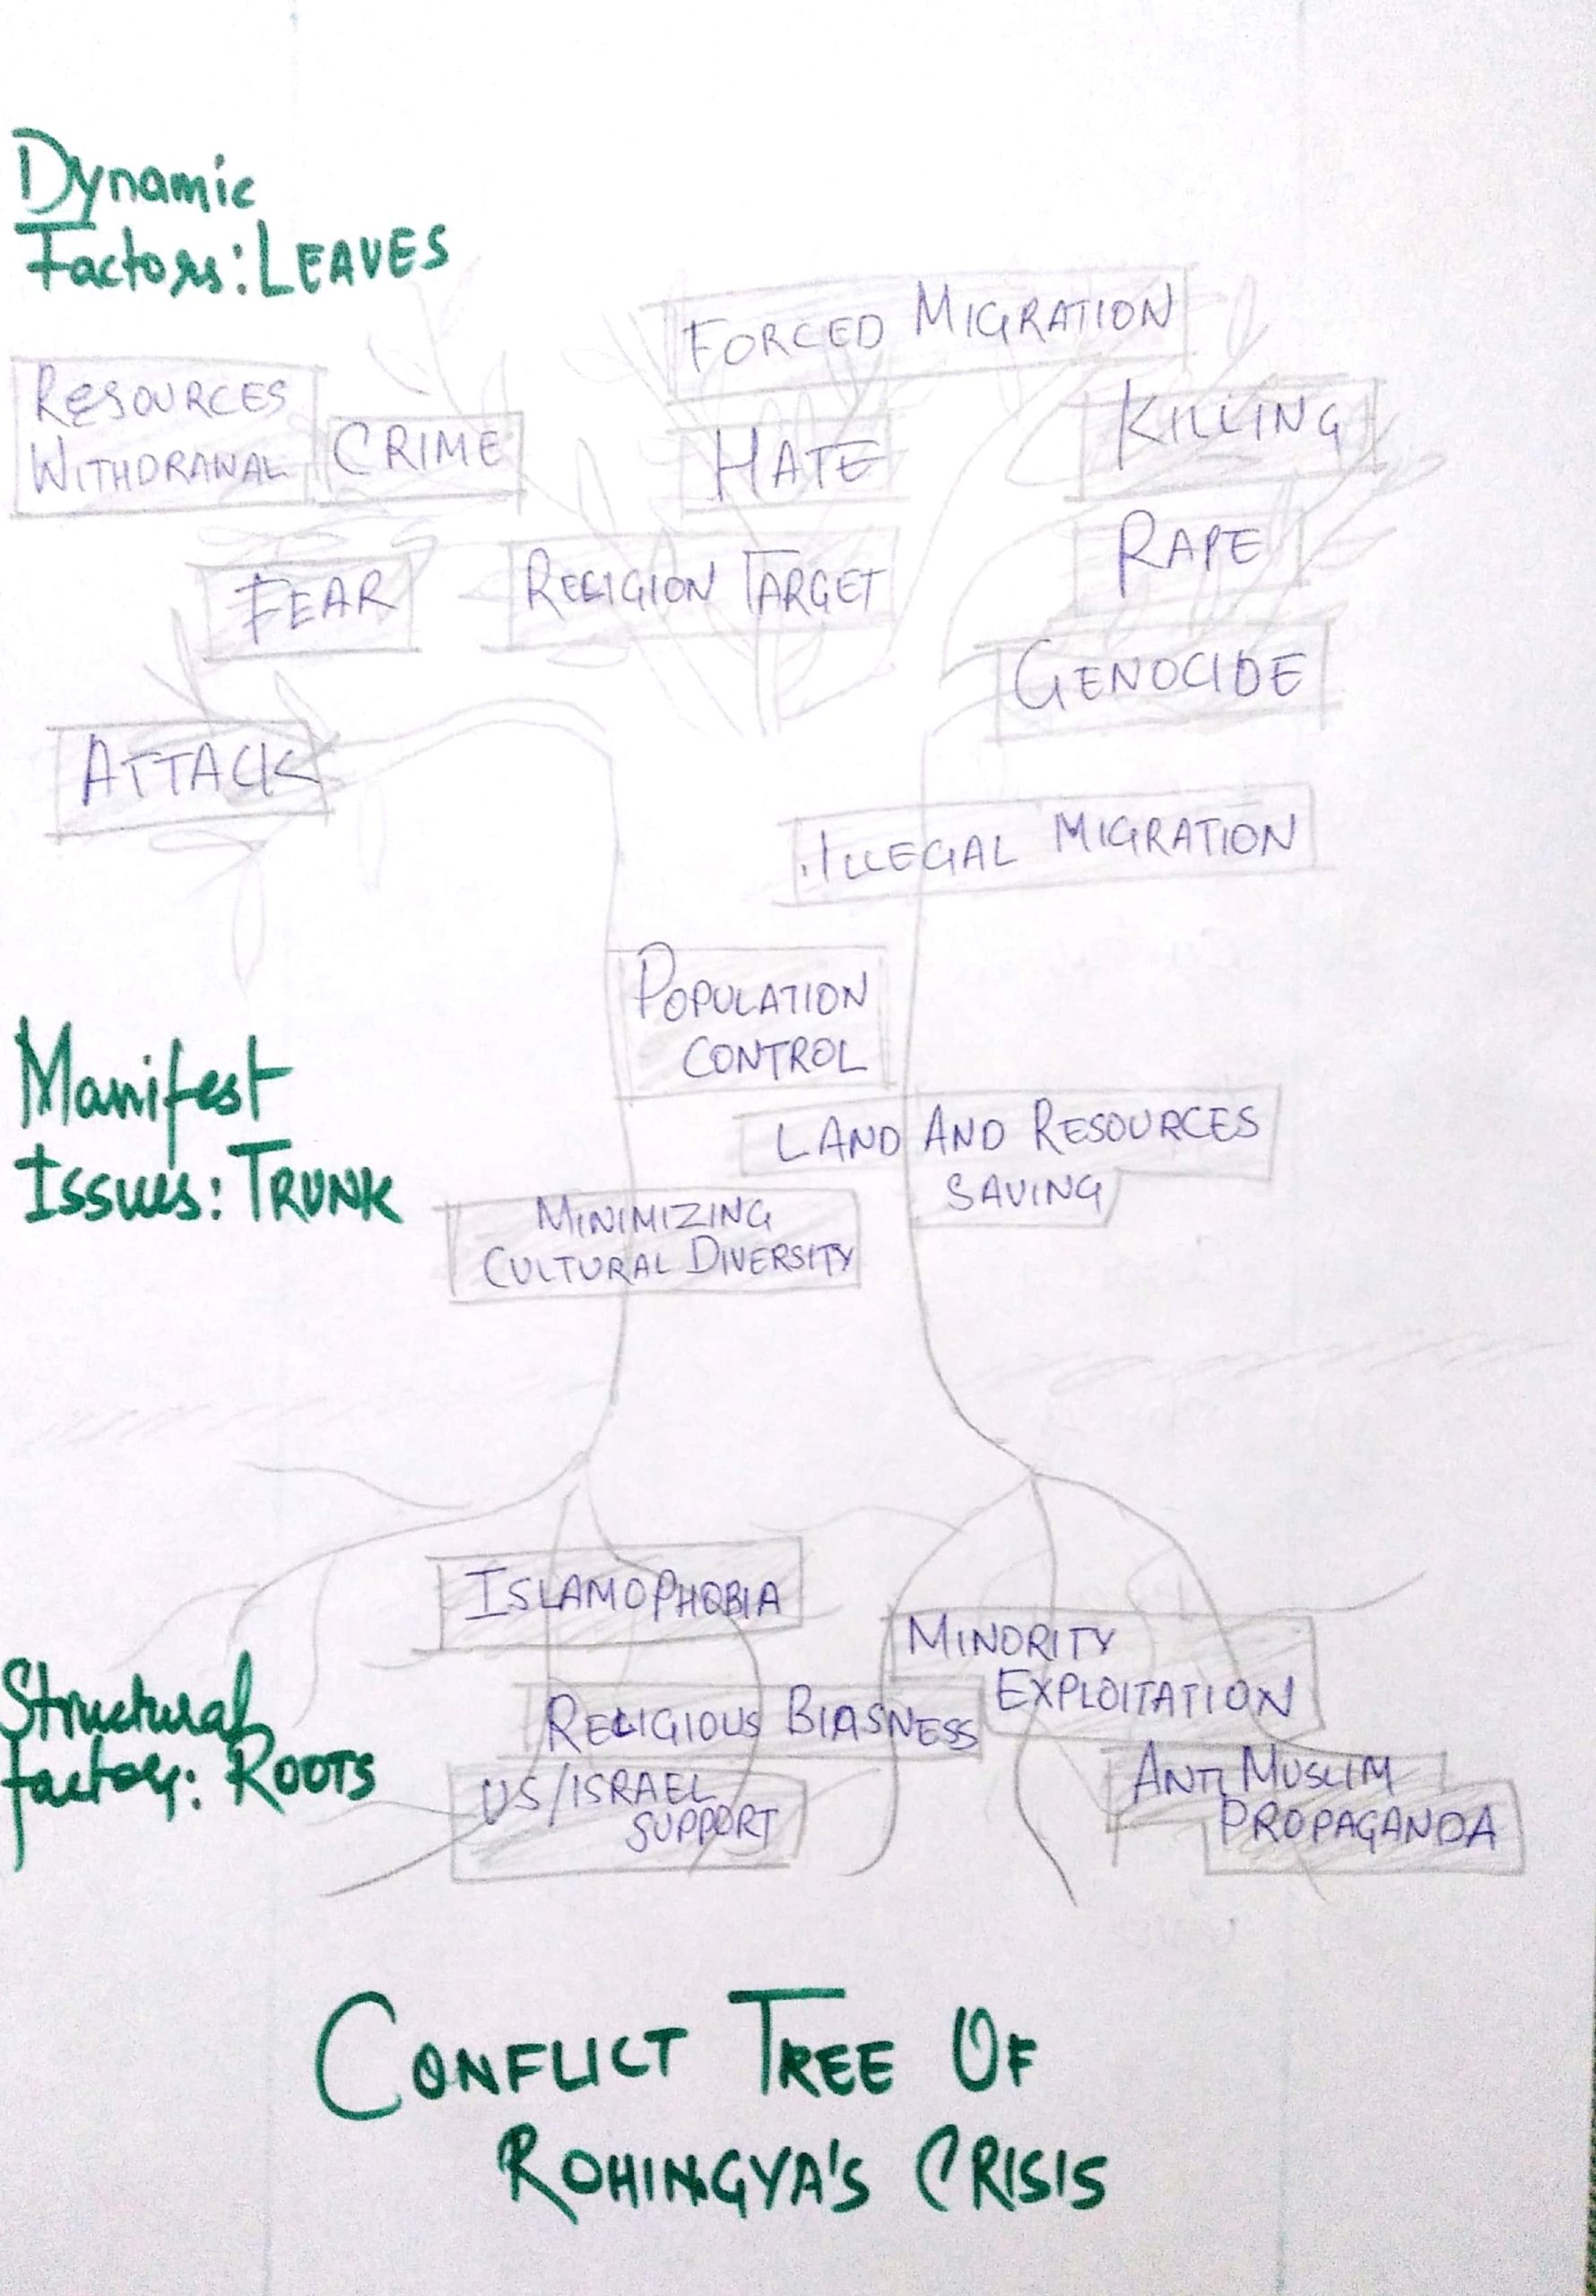 Dynamic
Factors: LEAVES
FORCED MIGRATION
RESOURCES
WITHDRAWAL
CRIME
HATE
KILLING
FEAR
RELIGION TARGET
RAPE
GENOCIDE
ATTACK
ILLEGAL MIGRATION
POPULATION
CONTROL
Manifest
Issues: TRUNK
LAND AND RESOURCES
SAVING
MINIMIZING
CULTURAL DIVERSITY
ISLAMOPHOBIA
MINORITY
EXPLOITATION
Structural
factors: ROOTS
RELIGIOUS BIASNESS
US/ISRAEL
SUPPORT
ANTI MUSLIM
PROPAGANDA
CONFLICT TREE OF
ROHINGYA'S CRISIS